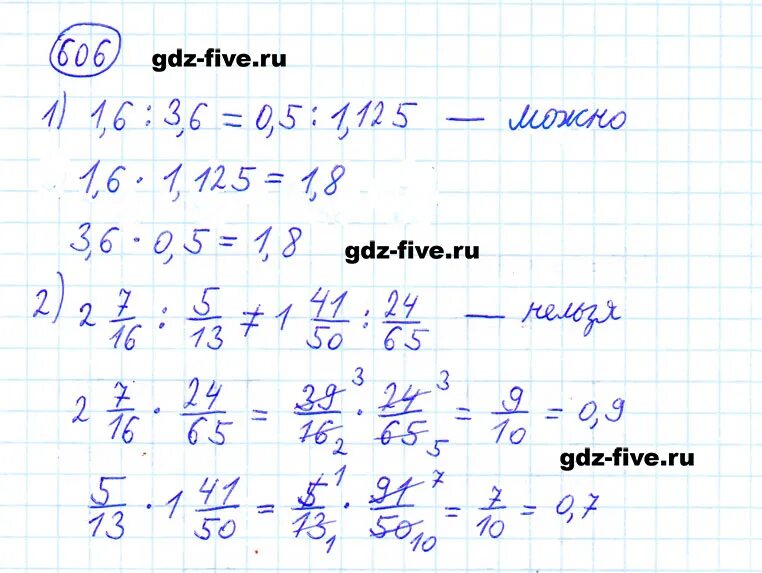 606 gdz-five.ru
1) 1,6 : 3,6 = 0,5 : 1,125 — можно
1,6 · 1,125 = 1,8
3,6 · 0,5 = 1,8 gdz-five.ru
2) 2 7/16 : 5/13 ≠ 1 41/50 : 24/65 — нельзя
2 7/16 · 24/65 = 39 3/16 2 · 24 3/65 5 = 9/10 = 0,9
gdz-five.ru
5/13 · 1 41/50 = 5 1/13 1 · 91 7/50 10 = 7/10 = 0,7